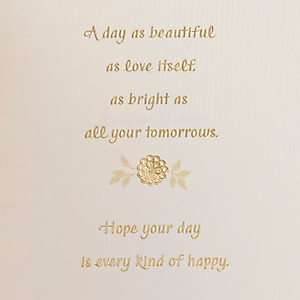 A day as beautiful
as love itself,
as bright as
all your tomorrows.
Hope your day
is every kind of happy.